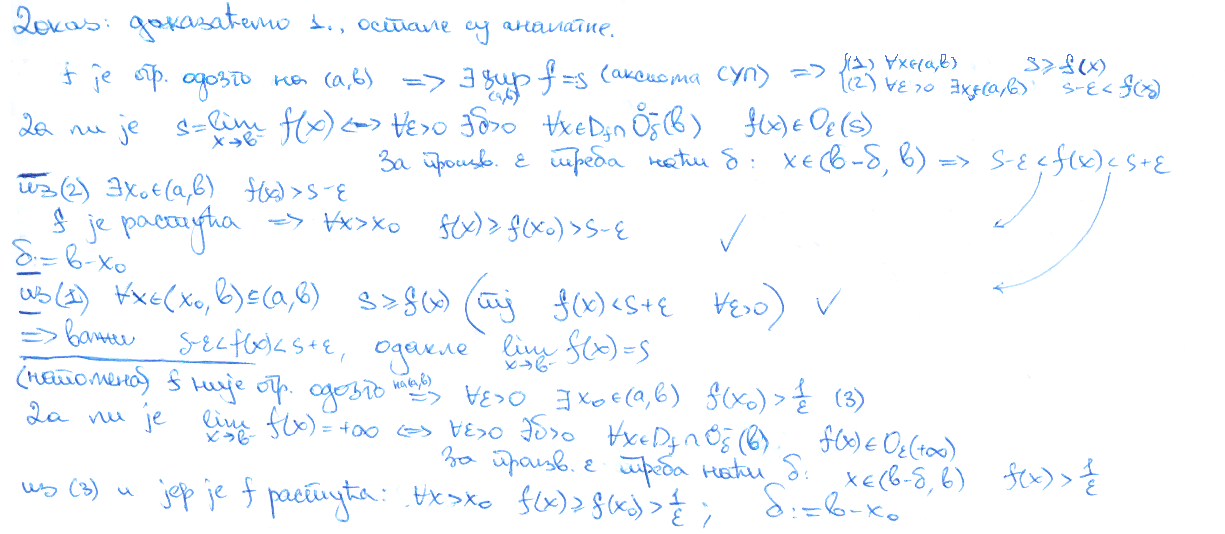 Доказ: доказаћемо 1., остале су аналогне.
f је огр. одозго на (a,b) ⟹ ∃ sup_(a,b) f = s (аксиома СУП) ⟹ { (1) ∀x∈(a,b) s ≥ f(x)
(2) ∀ε>0 ∃x₀∈(a,b) s-ε < f(x₀)
Да ли је s = lim_{x→b⁻} f(x) ⟺ ∀ε>0 ∃δ>0 ∀x∈D_f ∩ O̊_δ⁻(b) f(x)∈O_ε(s)
За произв. ε треба наћи δ: x∈(b-δ, b) ⟹ s-ε < f(x) < s+ε
из (2) ∃x₀∈(a,b) f(x₀) > s-ε
f је растућа ⟹ ∀x>x₀ f(x) ≥ f(x₀) > s-ε ✓
δ := b-x₀
из (1) ∀x∈(x₀, b)⊆(a,b) s ≥ f(x) (тј f(x) < s+ε ∀ε>0) ✓
⟹ важи s-ε < f(x) < s+ε, одакле lim_{x→b⁻} f(x) = s
(напомена) f није огр. одозго на (a,b) ⟹ ∀ε>0 ∃x₀∈(a,b) f(x₀) > 1/ε (3)
Да ли је lim_{x→b⁻} f(x) = +∞ ⟺ ∀ε>0 ∃δ>0 ∀x∈D_f ∩ O̊_δ⁻(b) f(x)∈O_ε(+∞)
За произв. ε треба наћи δ: x∈(b-δ, b) f(x) > 1/ε
из (3) и јер је f растућа: ∀x>x₀ f(x) ≥ f(x₀) > 1/ε ; δ := b-x₀